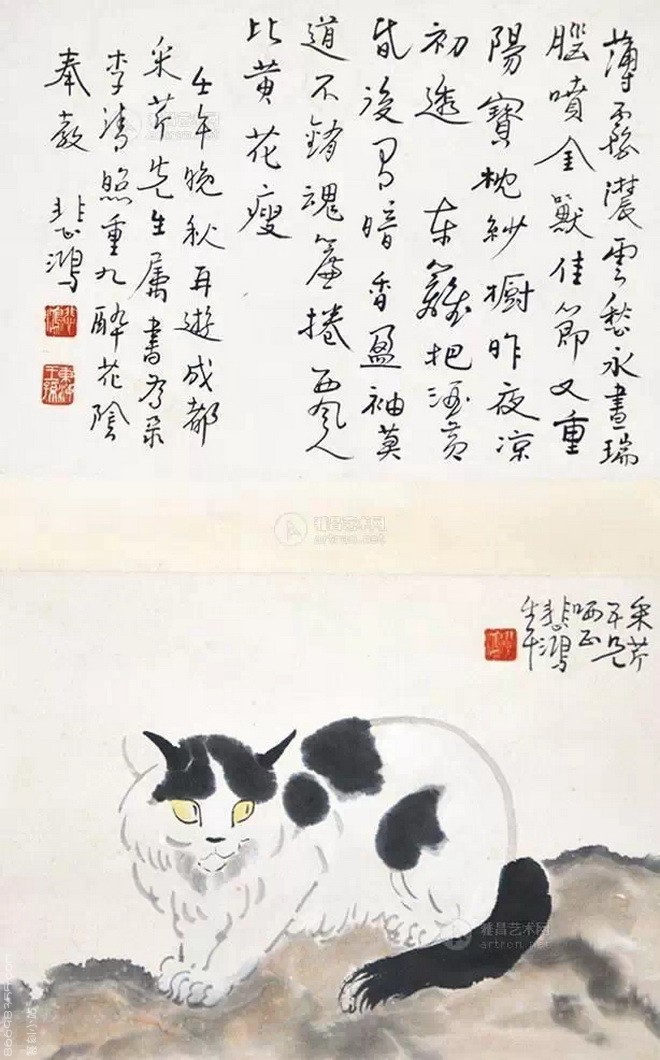 薄霧濃雲愁永晝瑞
腦噴金獸佳節又重
陽寶枕紗橱昨夜凉
初透 東籬把酒黃
昏後有暗香盈袖莫
道不銷魂簾捲西風人
比黃花瘦
壬午晚秋再遊成都
采芹先生属書為
李清照重九醉花陰
奉教 悲鴻
悲鴻
東海王孫
采芹
吾兄
哂正
悲鴻
壬午
雅昌艺术网
artron.net
雅昌艺术网
artron.net